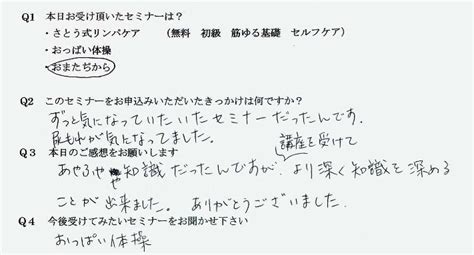 Q1 本日お受け頂いたセミナーは？
・さとう式リンパケア （無料 初級 筋ゆる基礎 セルフケア）
・おっぱい体操
・おまたぢから
Q2 このセミナーをお申込みいただいたきっかけは何ですか？
ずっと気になっていたいたセミナーだったんです。
尿もれが気になってました。
Q3 本日のご感想をお願いします
講座を受けて
あやふや 知識だったんですが、より深く知識を深める
や
ことが出来ました。 ありがとうございました。
Q4 今後受けてみたいセミナーをお聞かせ下さい
おっぱい体操